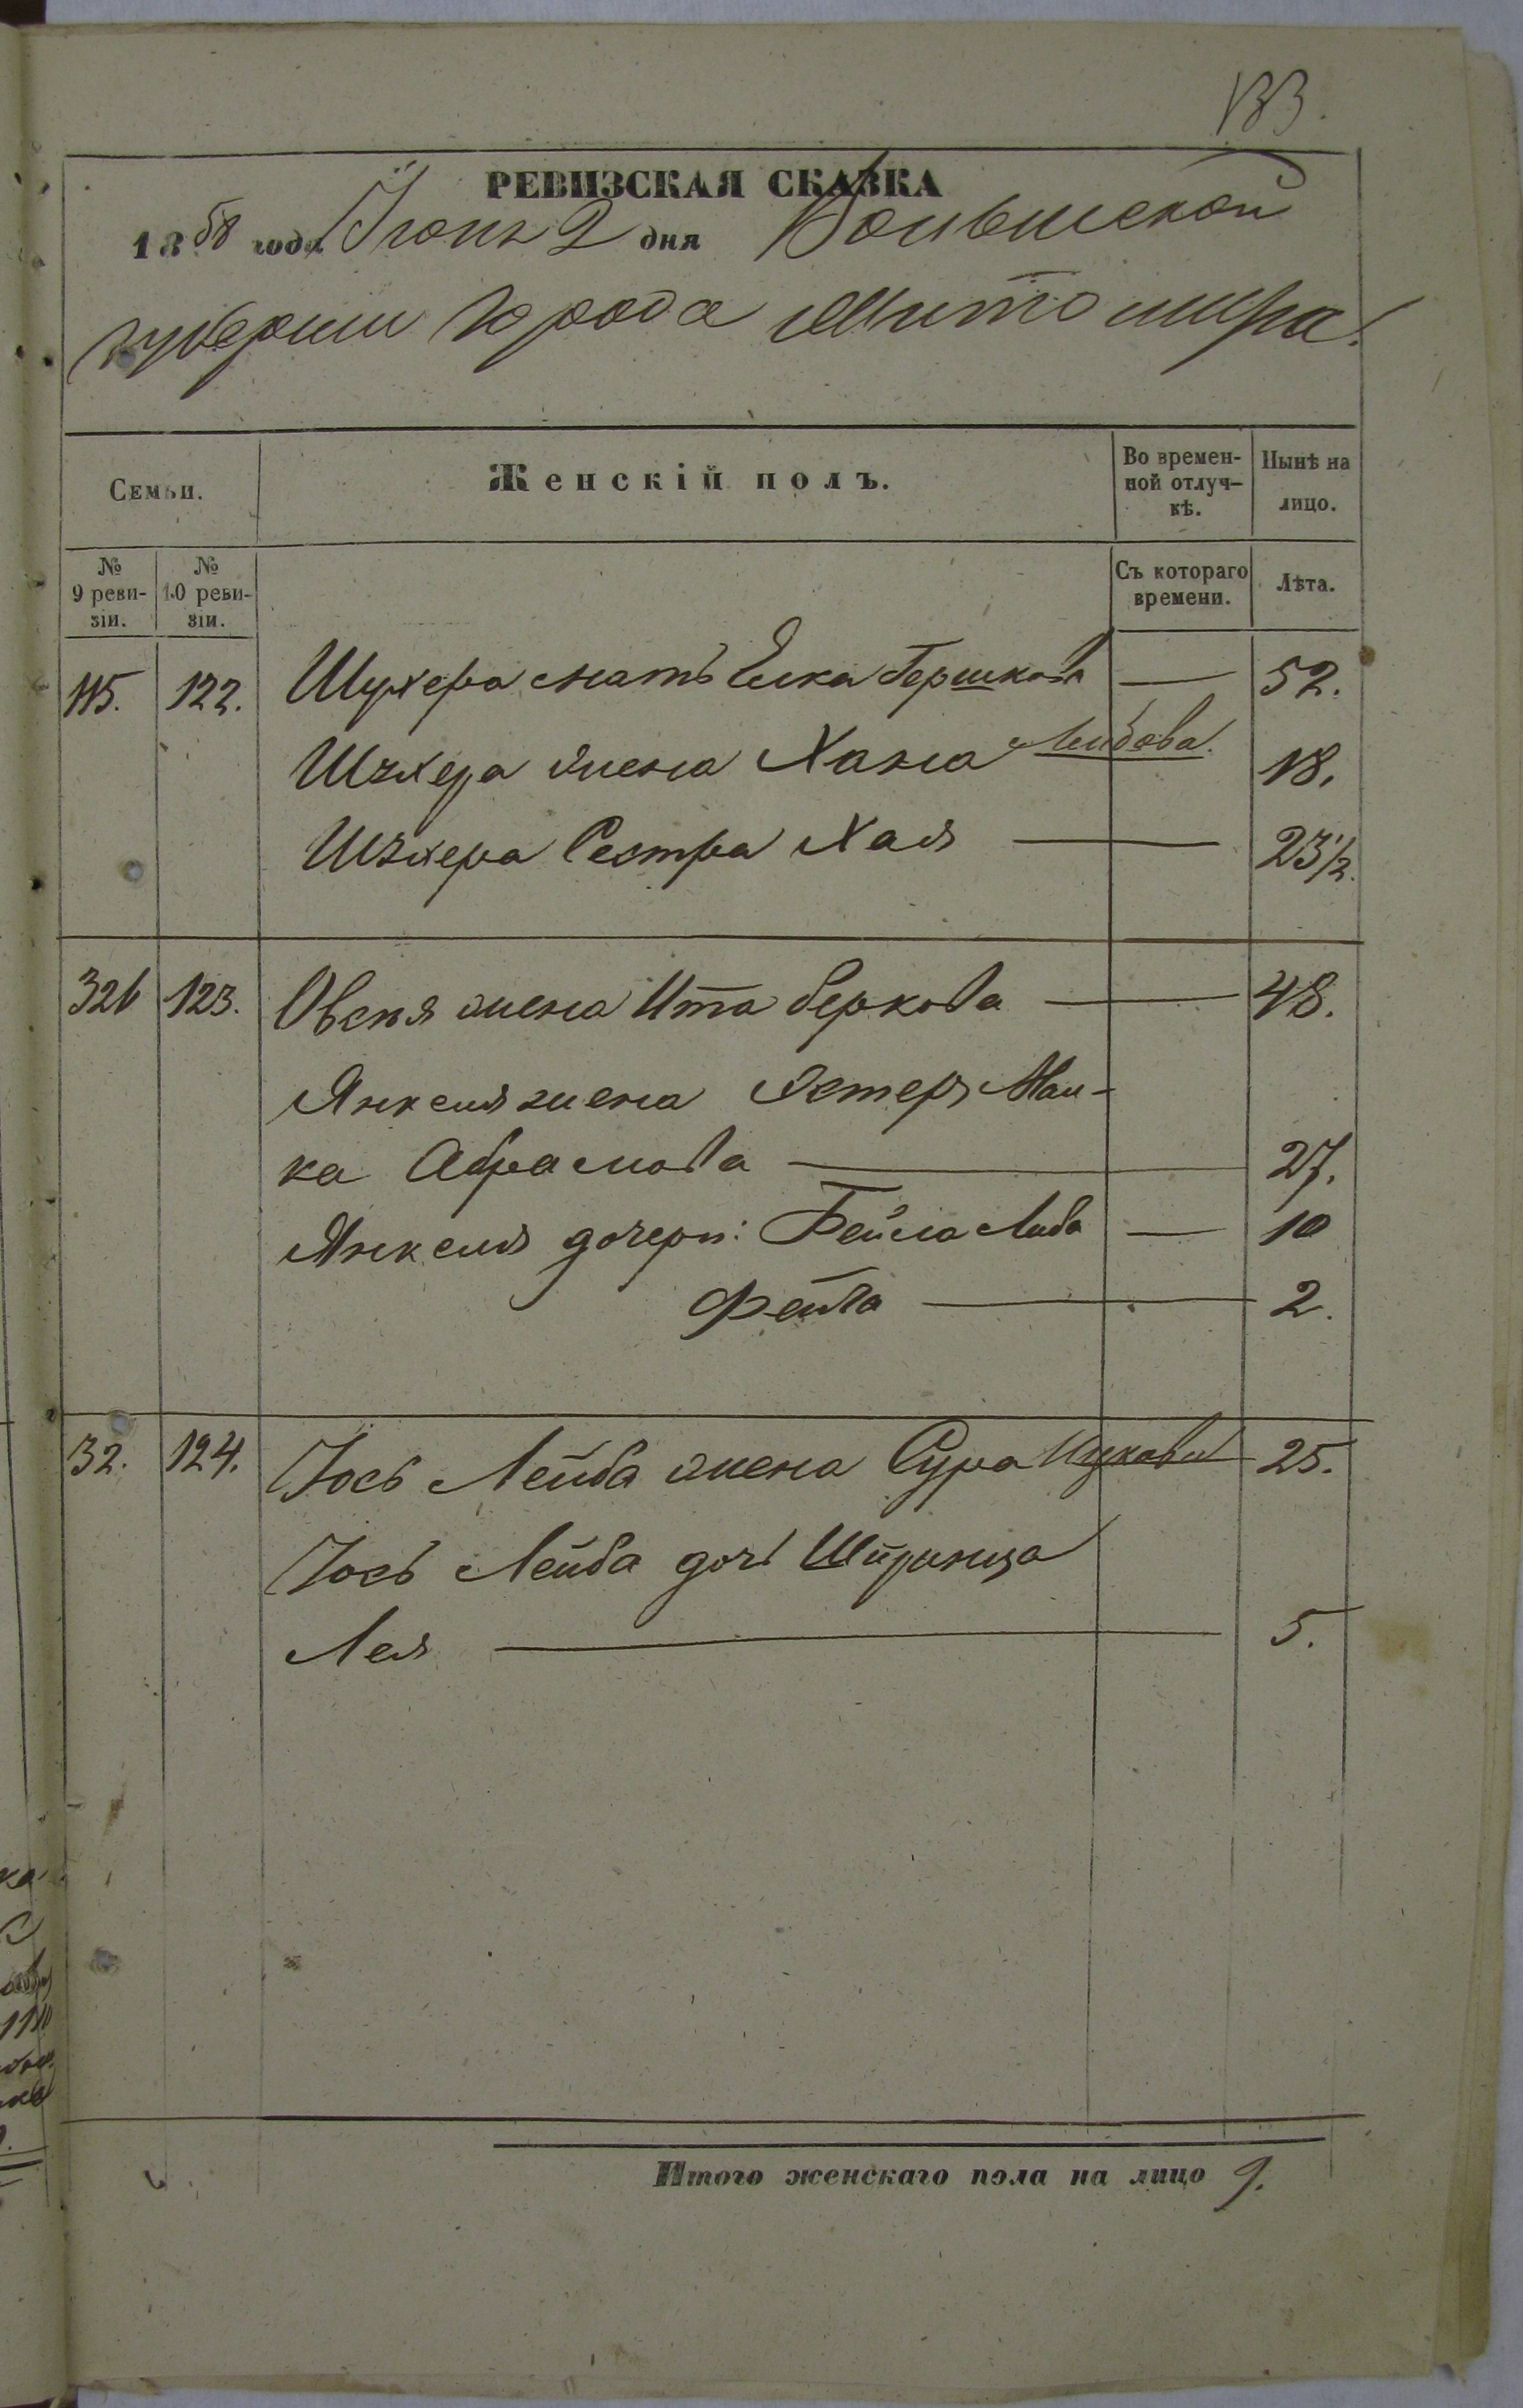 133.
РЕВИЗСКАЯ СКАЗКА
1858 года Іюня 2 дня Волынской
губернии города Житомира.
Семьи. Женскій полъ. Во времен- Нынѣ на
ной отлуч- лицо.
кѣ.
№ № Съ котораго Лѣта.
9 реви- 10 реви- времени.
зіи. зіи.
115. 122. Шухера мать Елка Гершкова — 52.
Шухера жена Хана Лейбова. 18.
Шухера Сестра Хая — 23 1/2.
326 123. Овсея жена Ита Беркова — 48.
Янкеля жена Эстеръ Мал-
ка Абрамова — 27.
Янкеля дочери: Бейла Либа — 10
Фейга — 2.
32. 124. Іось Лейба жена Сура Ицкова 25.
Іось Лейба дочь Шпринца
Лея — 5.
Итого женскаго пола на лицо 9.